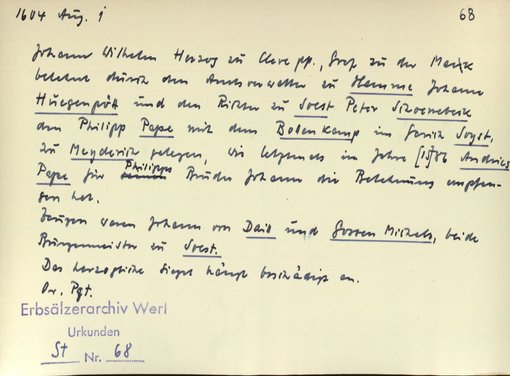 1604 Aug. 1
68
Johann Wilhelm Herzog zu Cleve pp., Graf zu der Marck
belehnt durch den Amtsverwalter zu Hamme Johann
Huegenpött und den Richter zu Soest Peter
den Philipp Pape mit dem Bolenkamp im Gericht Soest,
zu Meyderich gelegen, wie letztmals im Jahre [15]86 Andries
Pape für Philipps Bruder Johann die Belehnung empfan-
gen hat.
Zeugen waren Johann von Dail und Gossen Michels, beide
Burgemeister zu Soest.
Das herzogliche Siegel hängt beschädigt an.
Or. Pgt.
Erbsälzerarchiv Werl
Urkunden
St Nr. 68